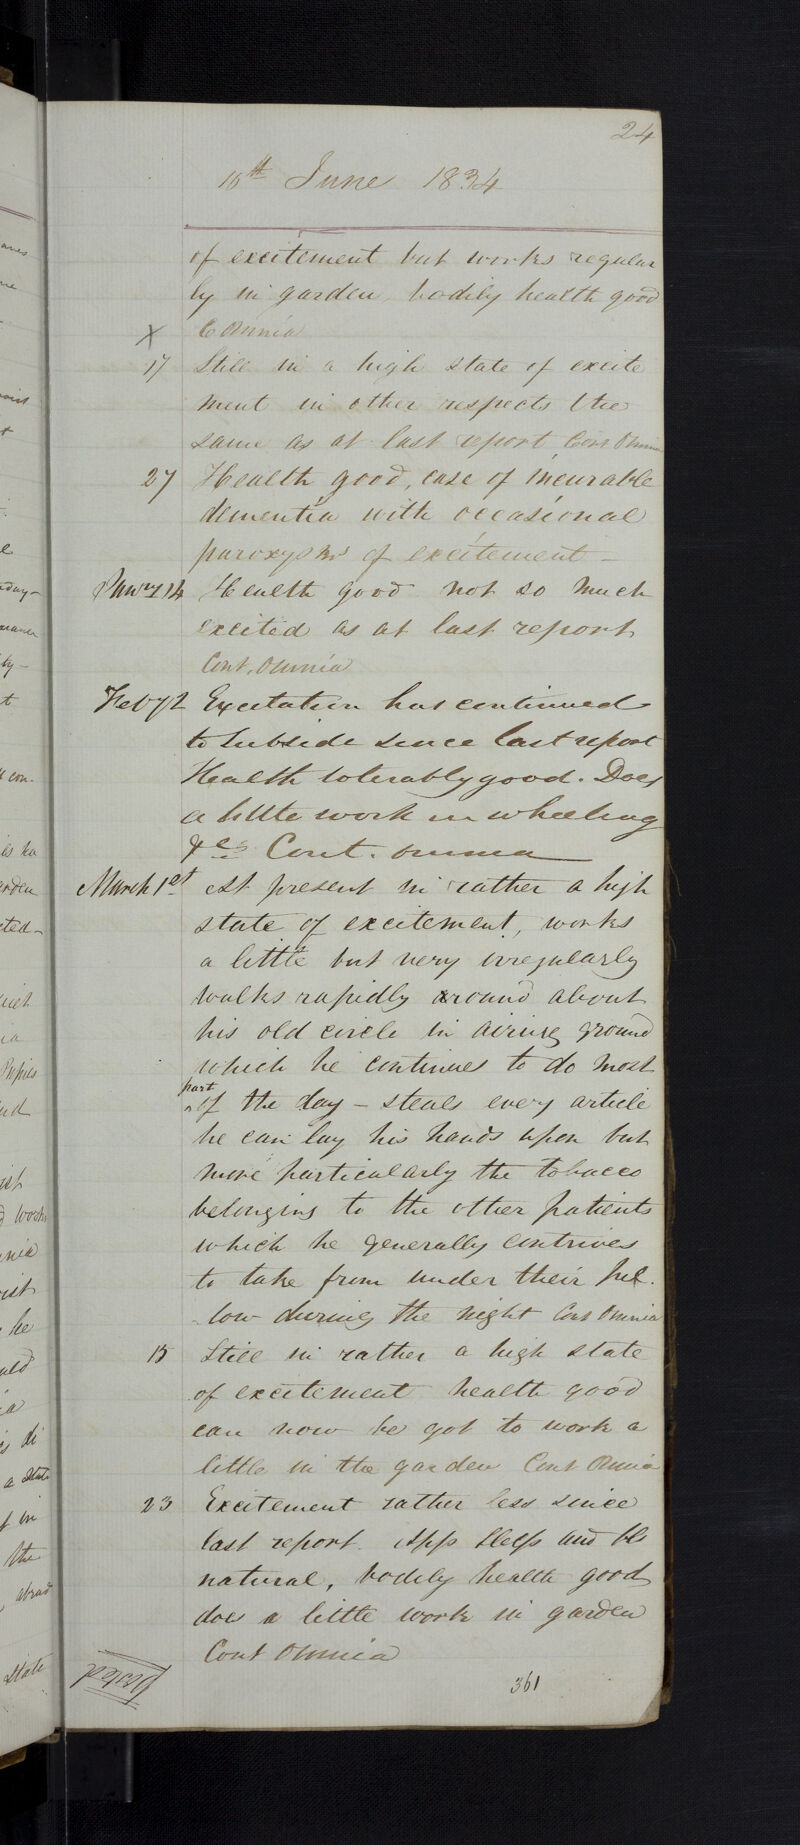 24
10th June 1834
of excitement but works regular
ly in garden, bodily health good
X C Omnia
17 Still in a high state of excite
ment in other respects the
same as at last report Cont Omnia
27 Health good, case of incurable
dementia with occasional
paroxysms of excitement –
Janry 14 Health good not so much
excited as at last report
Cont. Omnia
Feby 2 Excitation has continued
to subside since last report
Health tolerably good. Does
a little work in wheeling
&c Cont. omnia
March 1st At present in rather a high
state of excitement, works
a little but very irregularly
walks rapidly around about
his old circle in airing ground
which he continues to do most
part
of the day – steals every article
he can lay his hands upon but
more particularly the tobacco
belonging to the other patients
which he generally contrives
to take from under their pil.
low during the night Cont Omnia
15 Still in rather a high state
of excitement health good
can now be got to work a
little in the garden Cont Omnia
23 Excitement rather less since
last report. App Sleep and Bs
natural, bodily health good
does a little work in garden
Cont Omnia
Posted
361